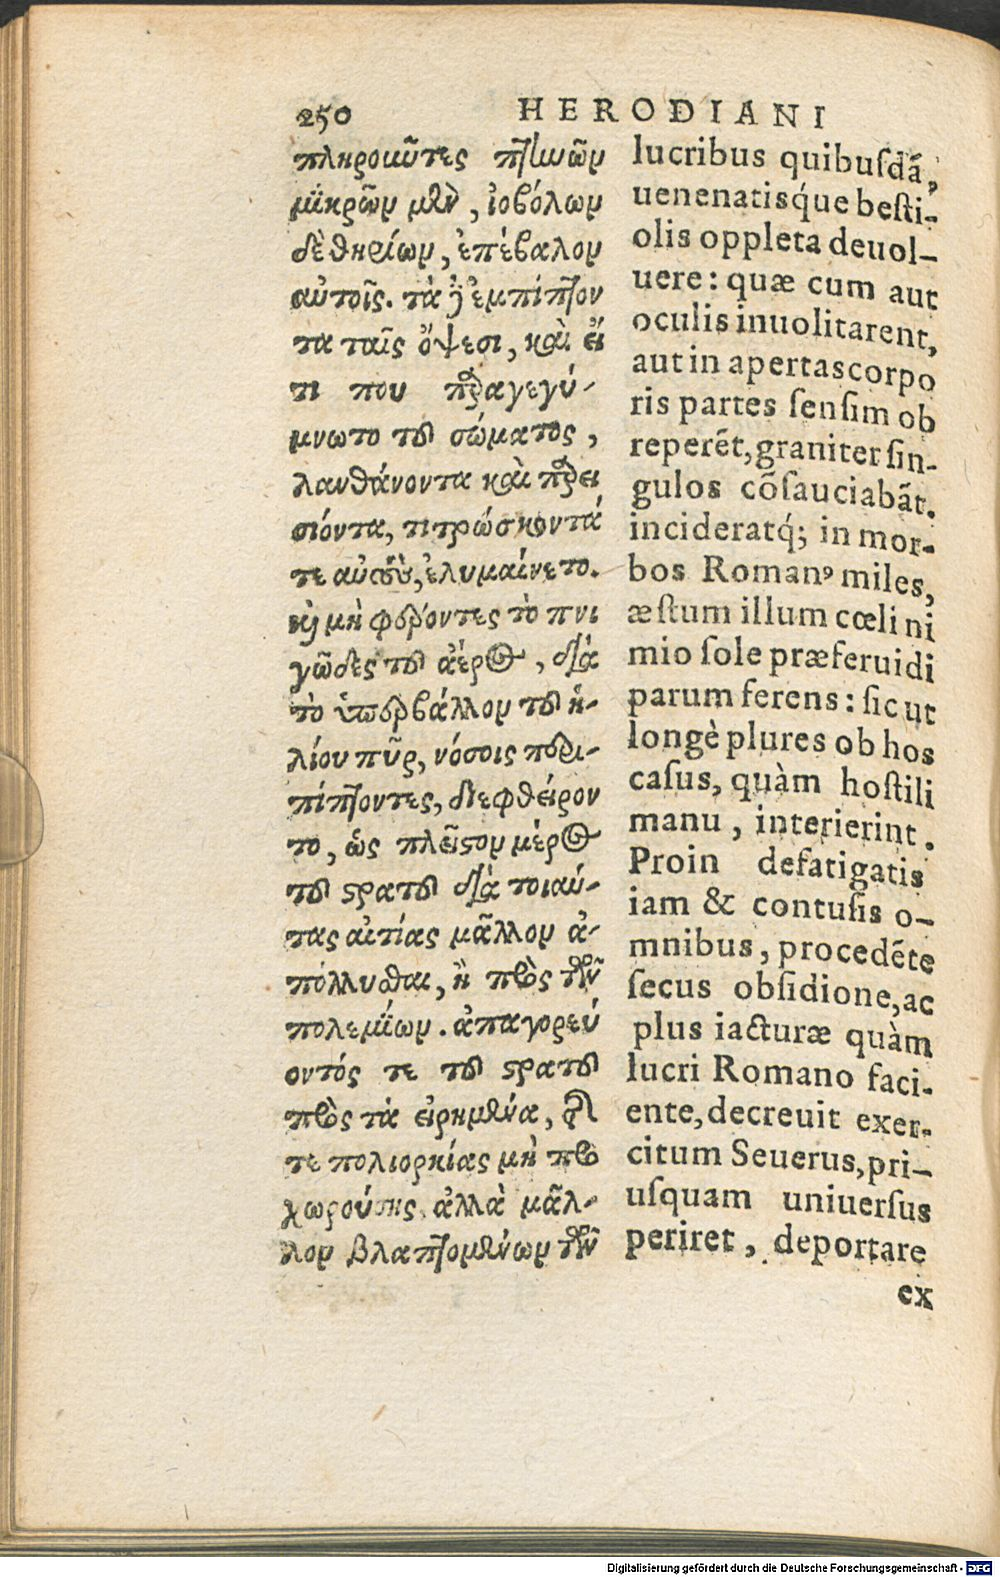 250 HERODIANI
πληροῦντες πτηνῶν
μικρῶν μὲν, ἰοβόλων
δὲ θηρίων, ἐπέβαλον
αὐτοῖς. τὰ δ᾽ ἐμπίπτον
τα ταῖς ὄψεσι, καὶ εἴ
τι που παραγεγύ-
μνωτο τοῦ σώματος,
λανθάνοντα καὶ παρει
σιόντα, τιτρώσκοντά
τε αὐτοὺς, ἐλυμαίνετο.
καὶ μὴ φέροντες τὸ πνι
γῶδες τοῦ ἀέρος, διὰ
τὸ ὑπερβάλλον τοῦ ἡ-
λίου πῦρ, νόσοις περι-
πίπτοντες, διεφθείρον
το, ὡς πλεῖστον μέρος
τοῦ στρατοῦ διὰ τοιαύ-
τας αἰτίας μᾶλλον ἀ-
πόλλυσθαι, ἢ πρὸς τῶν
πολεμίων. ἀπαγορεύ
οντός τε τοῦ στρατοῦ
πρὸς τὰ εἰρημένα, τῆς
τε πολιορκίας μὴ προ
χωρούσης, ἀλλὰ μᾶλ-
λον βλαπτομένων τῶν
lucribus quibuſdã,
uenenatisq́ue beſti-
olis oppleta deuol-
uere: quæ cum aut
oculis inuolitarent,
aut in apertas corpo
ris partes ſenſim ob
reperẽt, grauiter ſin-
gulos cõſauciabãt.
incideratq́; in mor-
bos Romanꝰ miles,
æſtum illum cœli ni
mio ſole præferuidi
parum ferens: ſic ut
longè plures ob hos
caſus, quàm hoſtili
manu, interierint.
Proin defatigatis
iam & contuſis o-
mnibus, procedẽte
ſecus obſidione, ac
plus iacturæ quàm
lucri Romano faci-
ente, decreuit exer-
citum Seuerus, pri-
uſquam uniuerſus
periret, deportare
ex
Digitalisierung gefördert durch die Deutsche Forschungsgemeinschaft - DFG